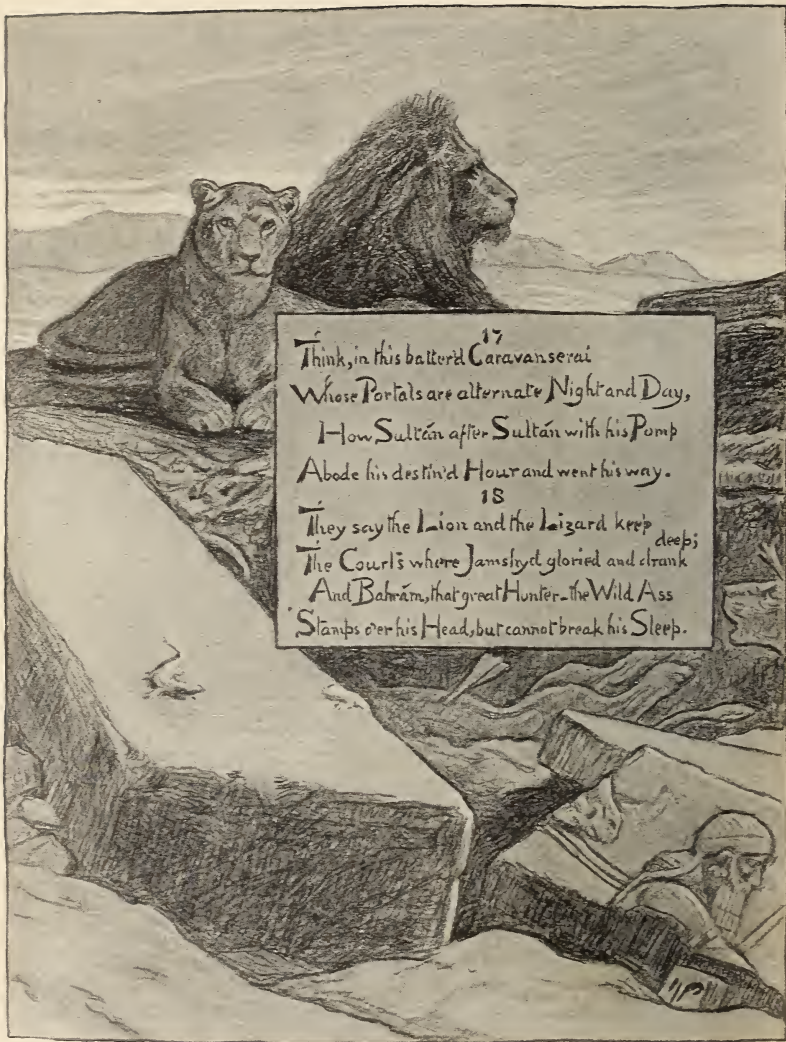 17
Think, in this batter'd Caravanserai
Whose Portals are alternate Night and Day,
How Sultán after Sultán with his Pomp
Abode his destin'd Hour and went his way.
18
They say the Lion and the Lizard keep
The Courts where Jamshyd gloried and drank deep;
And Bahrám, that great Hunter–the Wild Ass
Stamps o'er his Head, but cannot break his Sleep.